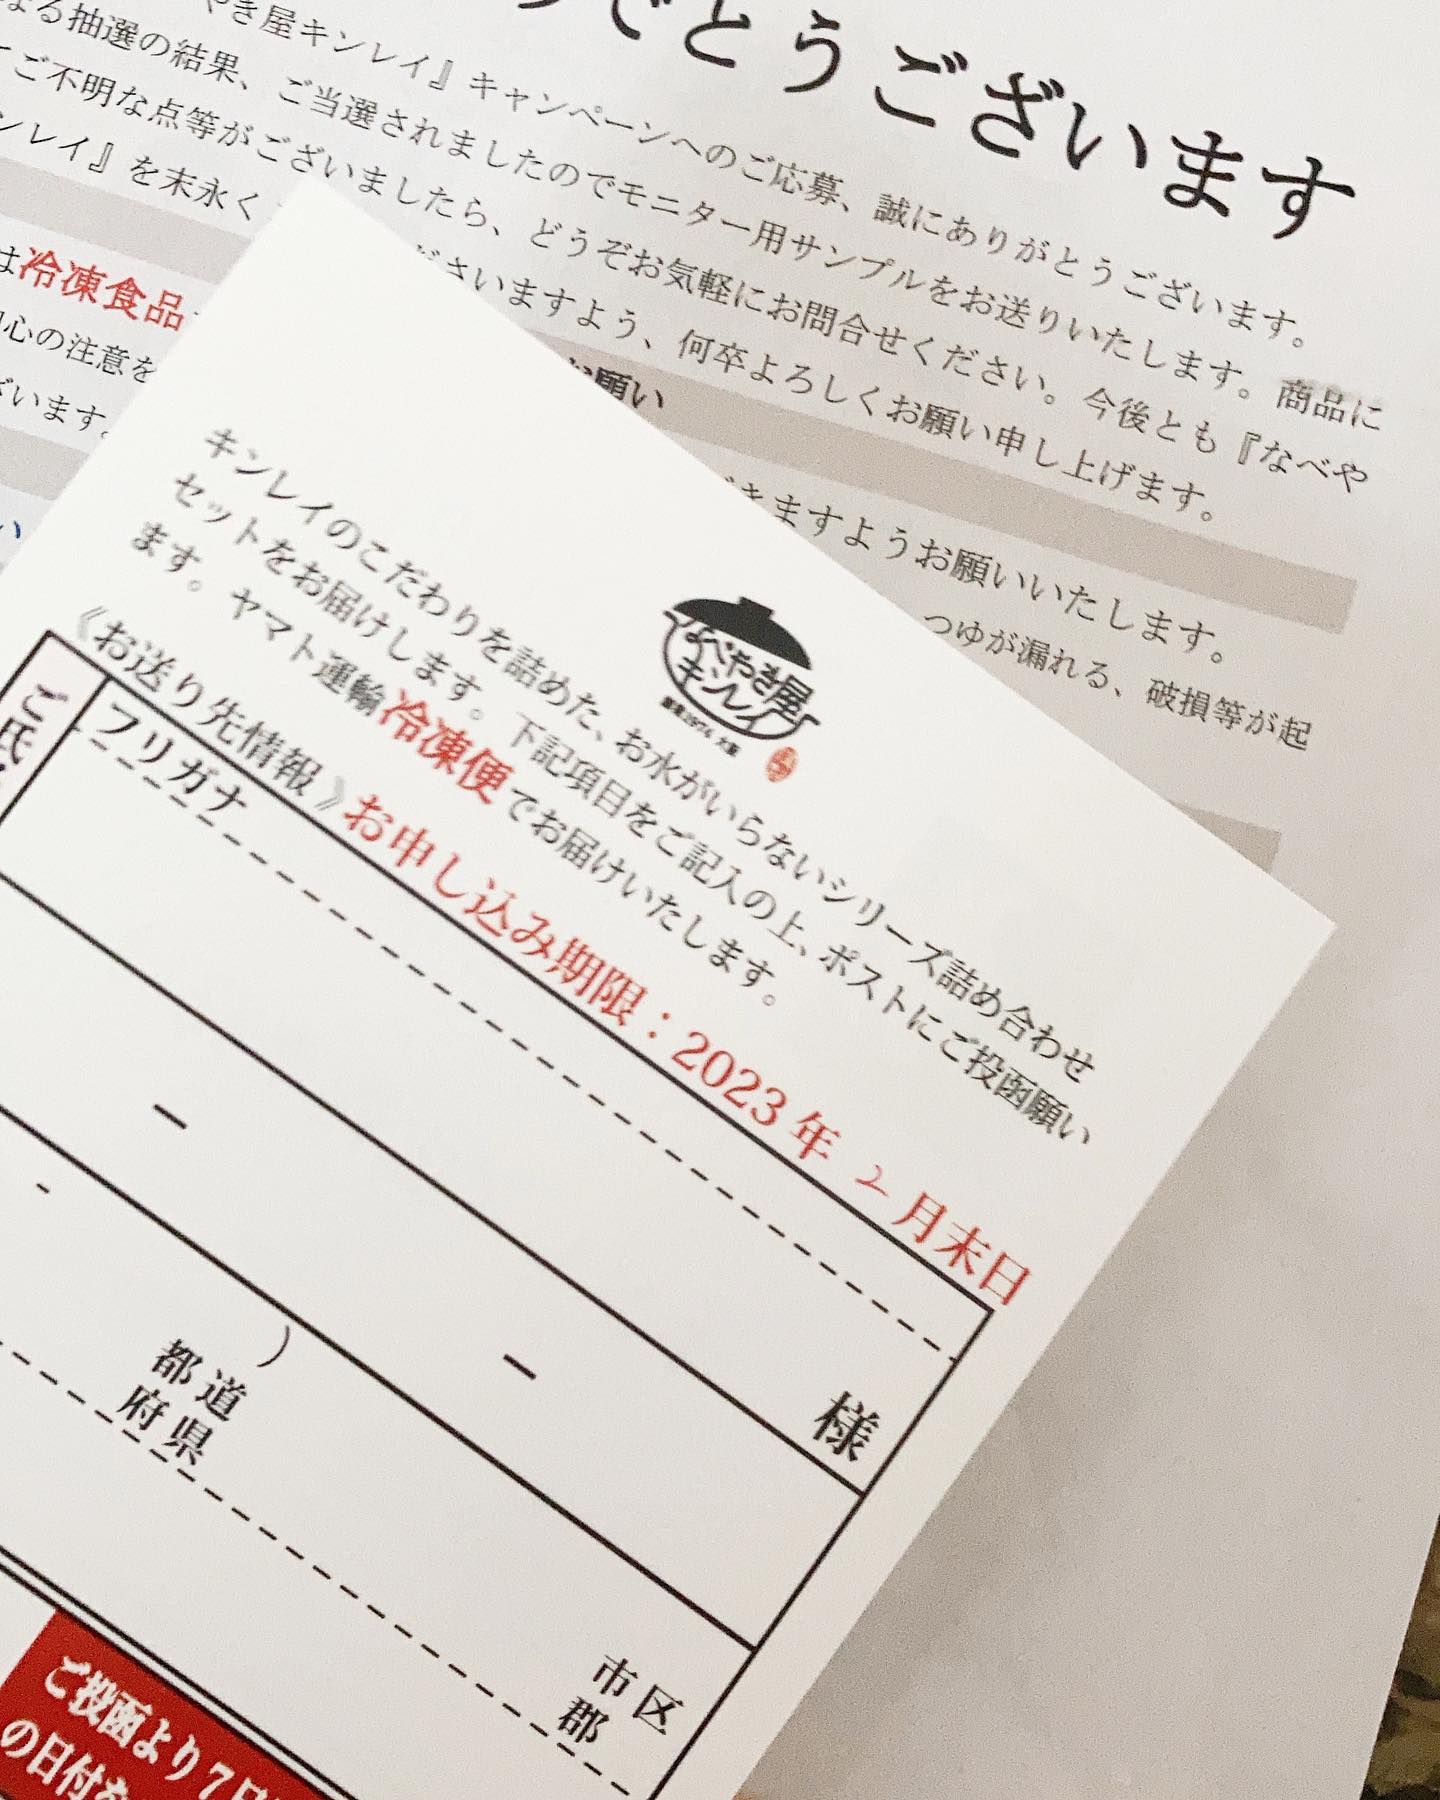 でとうございます
やき屋キンレイ』キャンペーンへのご応募、誠にありがとうございます。
なる抽選の結果、ご当選されましたのでモニター用サンプルをお送りいたします。商品に
てご不明な点等がございましたら、どうぞお気軽にお問合せください。今後とも『なべや
ンレイ』を末永く ださいますよう、何卒よろしくお願い申し上げます。
お願い
は冷凍食品
心の注意を
ざいます。
きますようお願いいたします。
つゆが漏れる、破損等が起
い
なべやき屋
キンレイ
キンレイのこだわりを詰めた、お水がいらないシリーズ詰め合わせ
セットをお届けします。下記項目をご記入の上、ポストにご投函願い
ます。ヤマト運輸冷凍便でお届けいたします。
《お送り先情報》お申し込み期限：2023年 2 月末日
ご氏
フリガナ
様
－ －
-
)
都道
府県
市区
郡
ご投函より7日
の日付を